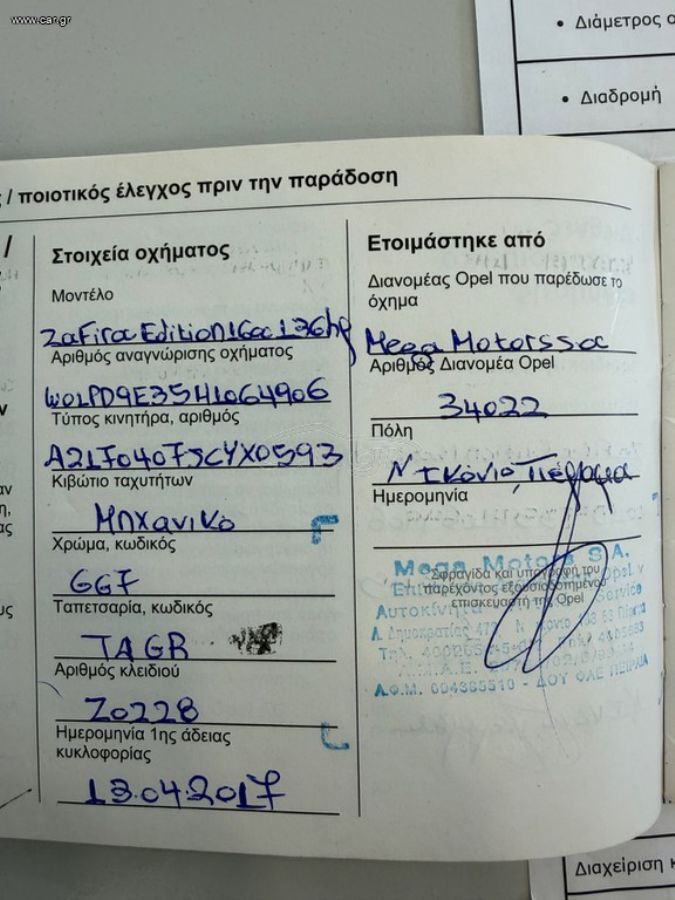 www.car.gr
• Διάμετρος
• Διαδρομή
/ ποιοτικός έλεγχος πριν την παράδοση
/
Στοιχεία οχήματος
Μοντέλο
Zafira Edition 1600 136hp
Αριθμός αναγνώρισης οχήματος
W0LPD9E35H1064906
Τύπος κινητήρα, αριθμός
Κιβώτιο ταχυτήτων
Μηχανικό
Χρώμα, κωδικός
GG7
Ταπετσαρία, κωδικός
TAGR
Αριθμός κλειδιού
Z0228
Ημερομηνία 1ης άδειας
κυκλοφορίας
13.04.2017
Ετοιμάστηκε από
Διανομέας Opel που παρέδωσε το
όχημα
Mega Motors sa
Αριθμός Διανομέα Opel
34022
Πόλη
Ημερομηνία
Mega Motors S.A.
Σφραγίδα και υπογραφή του
παρέχοντος εξουσιοδοτημένου
επισκευαστή της Opel
Αυτοκίνητα Service
Λ. Δημοκρατίας
Διαχείριση